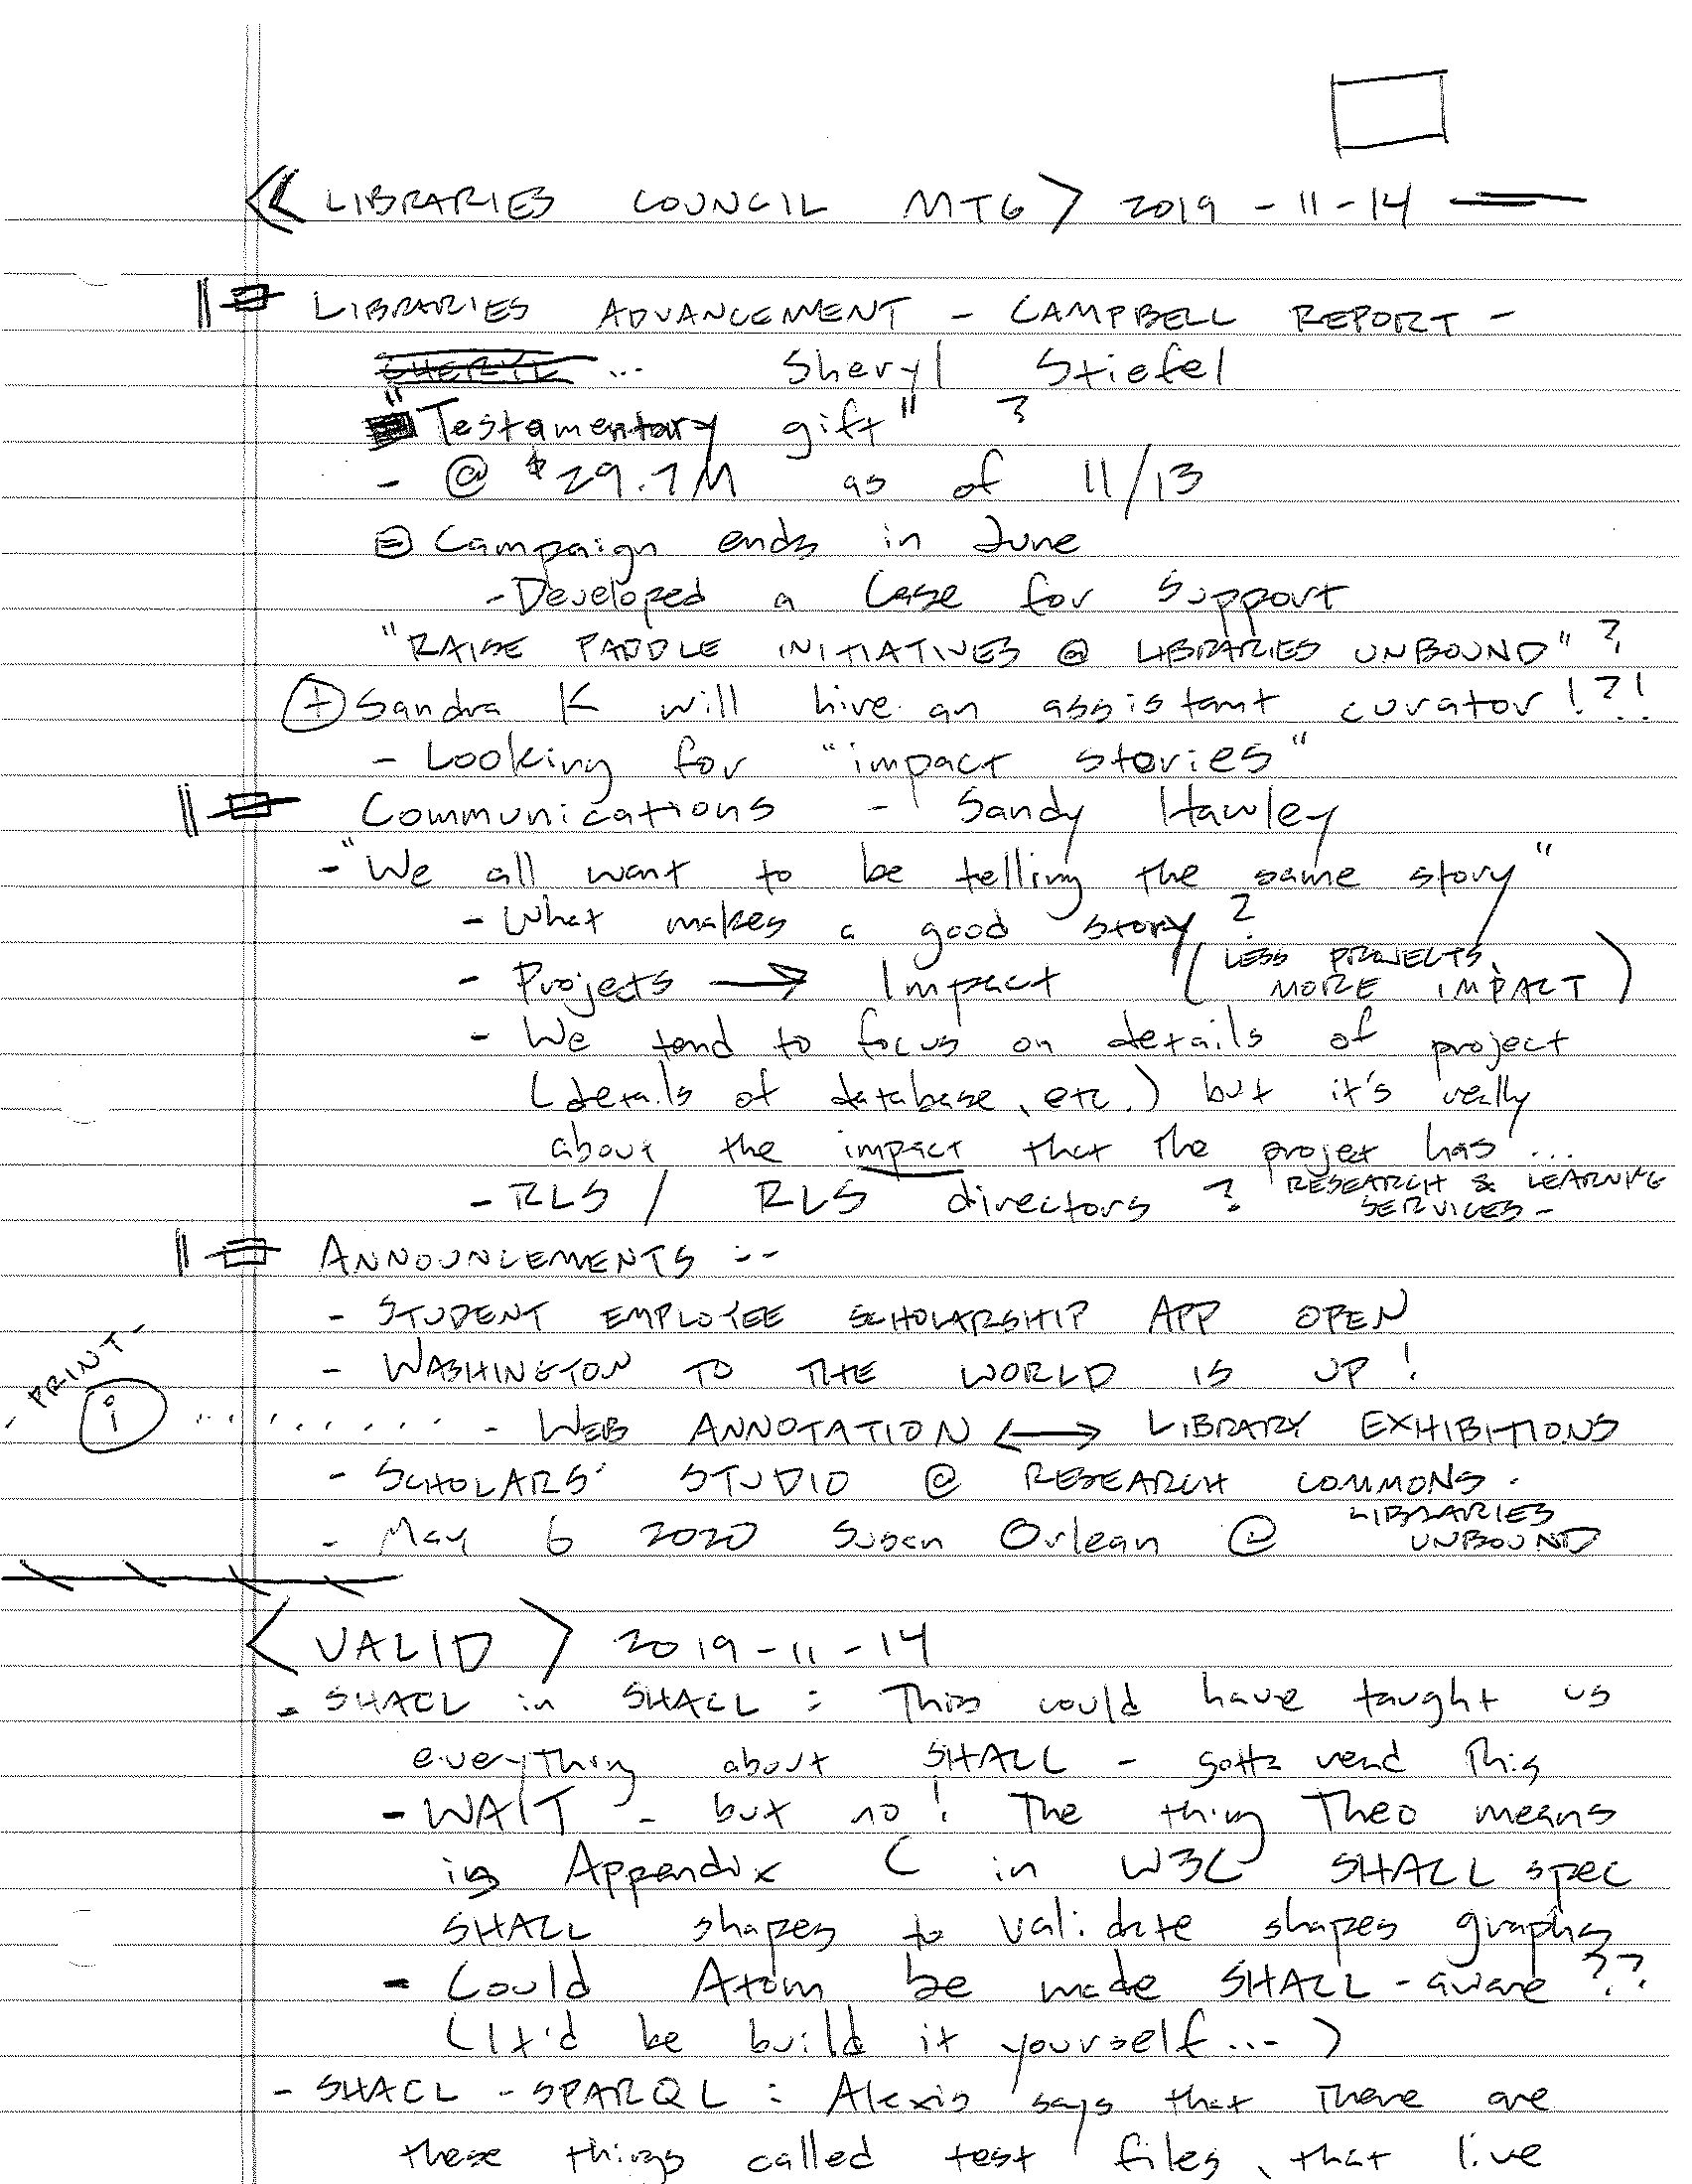 << LIBRARIES COUNCIL MTG > 2019-11-14
LIBRARIES ADVANCEMENT - CAMPBELL REPORT -
... Sheryl Stiefel
"Testamentary gift" ?
- @ $29.7M as of 11/13
Campaign ends in June
- Developed a Case for Support
"RAISE PADDLE INITIATIVES @ LIBRARIES UNBOUND" ?
+ Sandra K will hire an assistant curator!?!
- Looking for "impact stories"
Communications - Sandy Hawley
- "We all want to be telling the same story"
- What makes a good story?
- Projects → Impact (LESS PROJECTS, MORE IMPACT)
- We tend to focus on details of project
(details of database, etc.) but it's really
about the impact that the projet has...
- RLS / RLS directors ? RESEARCH & LEARNING SERVICES -
ANNOUNCEMENTS :--
- STUDENT EMPLOYEE SCHOLARSHIP APP OPEN
- WASHINGTON TO THE WORLD IS UP!
PRINT -
i ......... - WEB ANNOTATION ↔ LIBRARY EXHIBITIONS
- SCHOLARS' STUDIO @ RESEARCH COMMONS.
- May 6 2020 Susan Orlean @ LIBRARIES UNBOUND
< VALID > 2019-11-14
- SHACL in SHACL : This could have taught us
everything about SHACL - gotta read this
- WAIT - but no! The thing Theo means
is Appendix C in W3C SHACL spec
SHACL shapes to validate shapes graphs
- Could Atom be made SHACL-aware??
(It'd be build it yourself...)
- SHACL-SPARQL : Alexis says that there are
these things called test files, that live